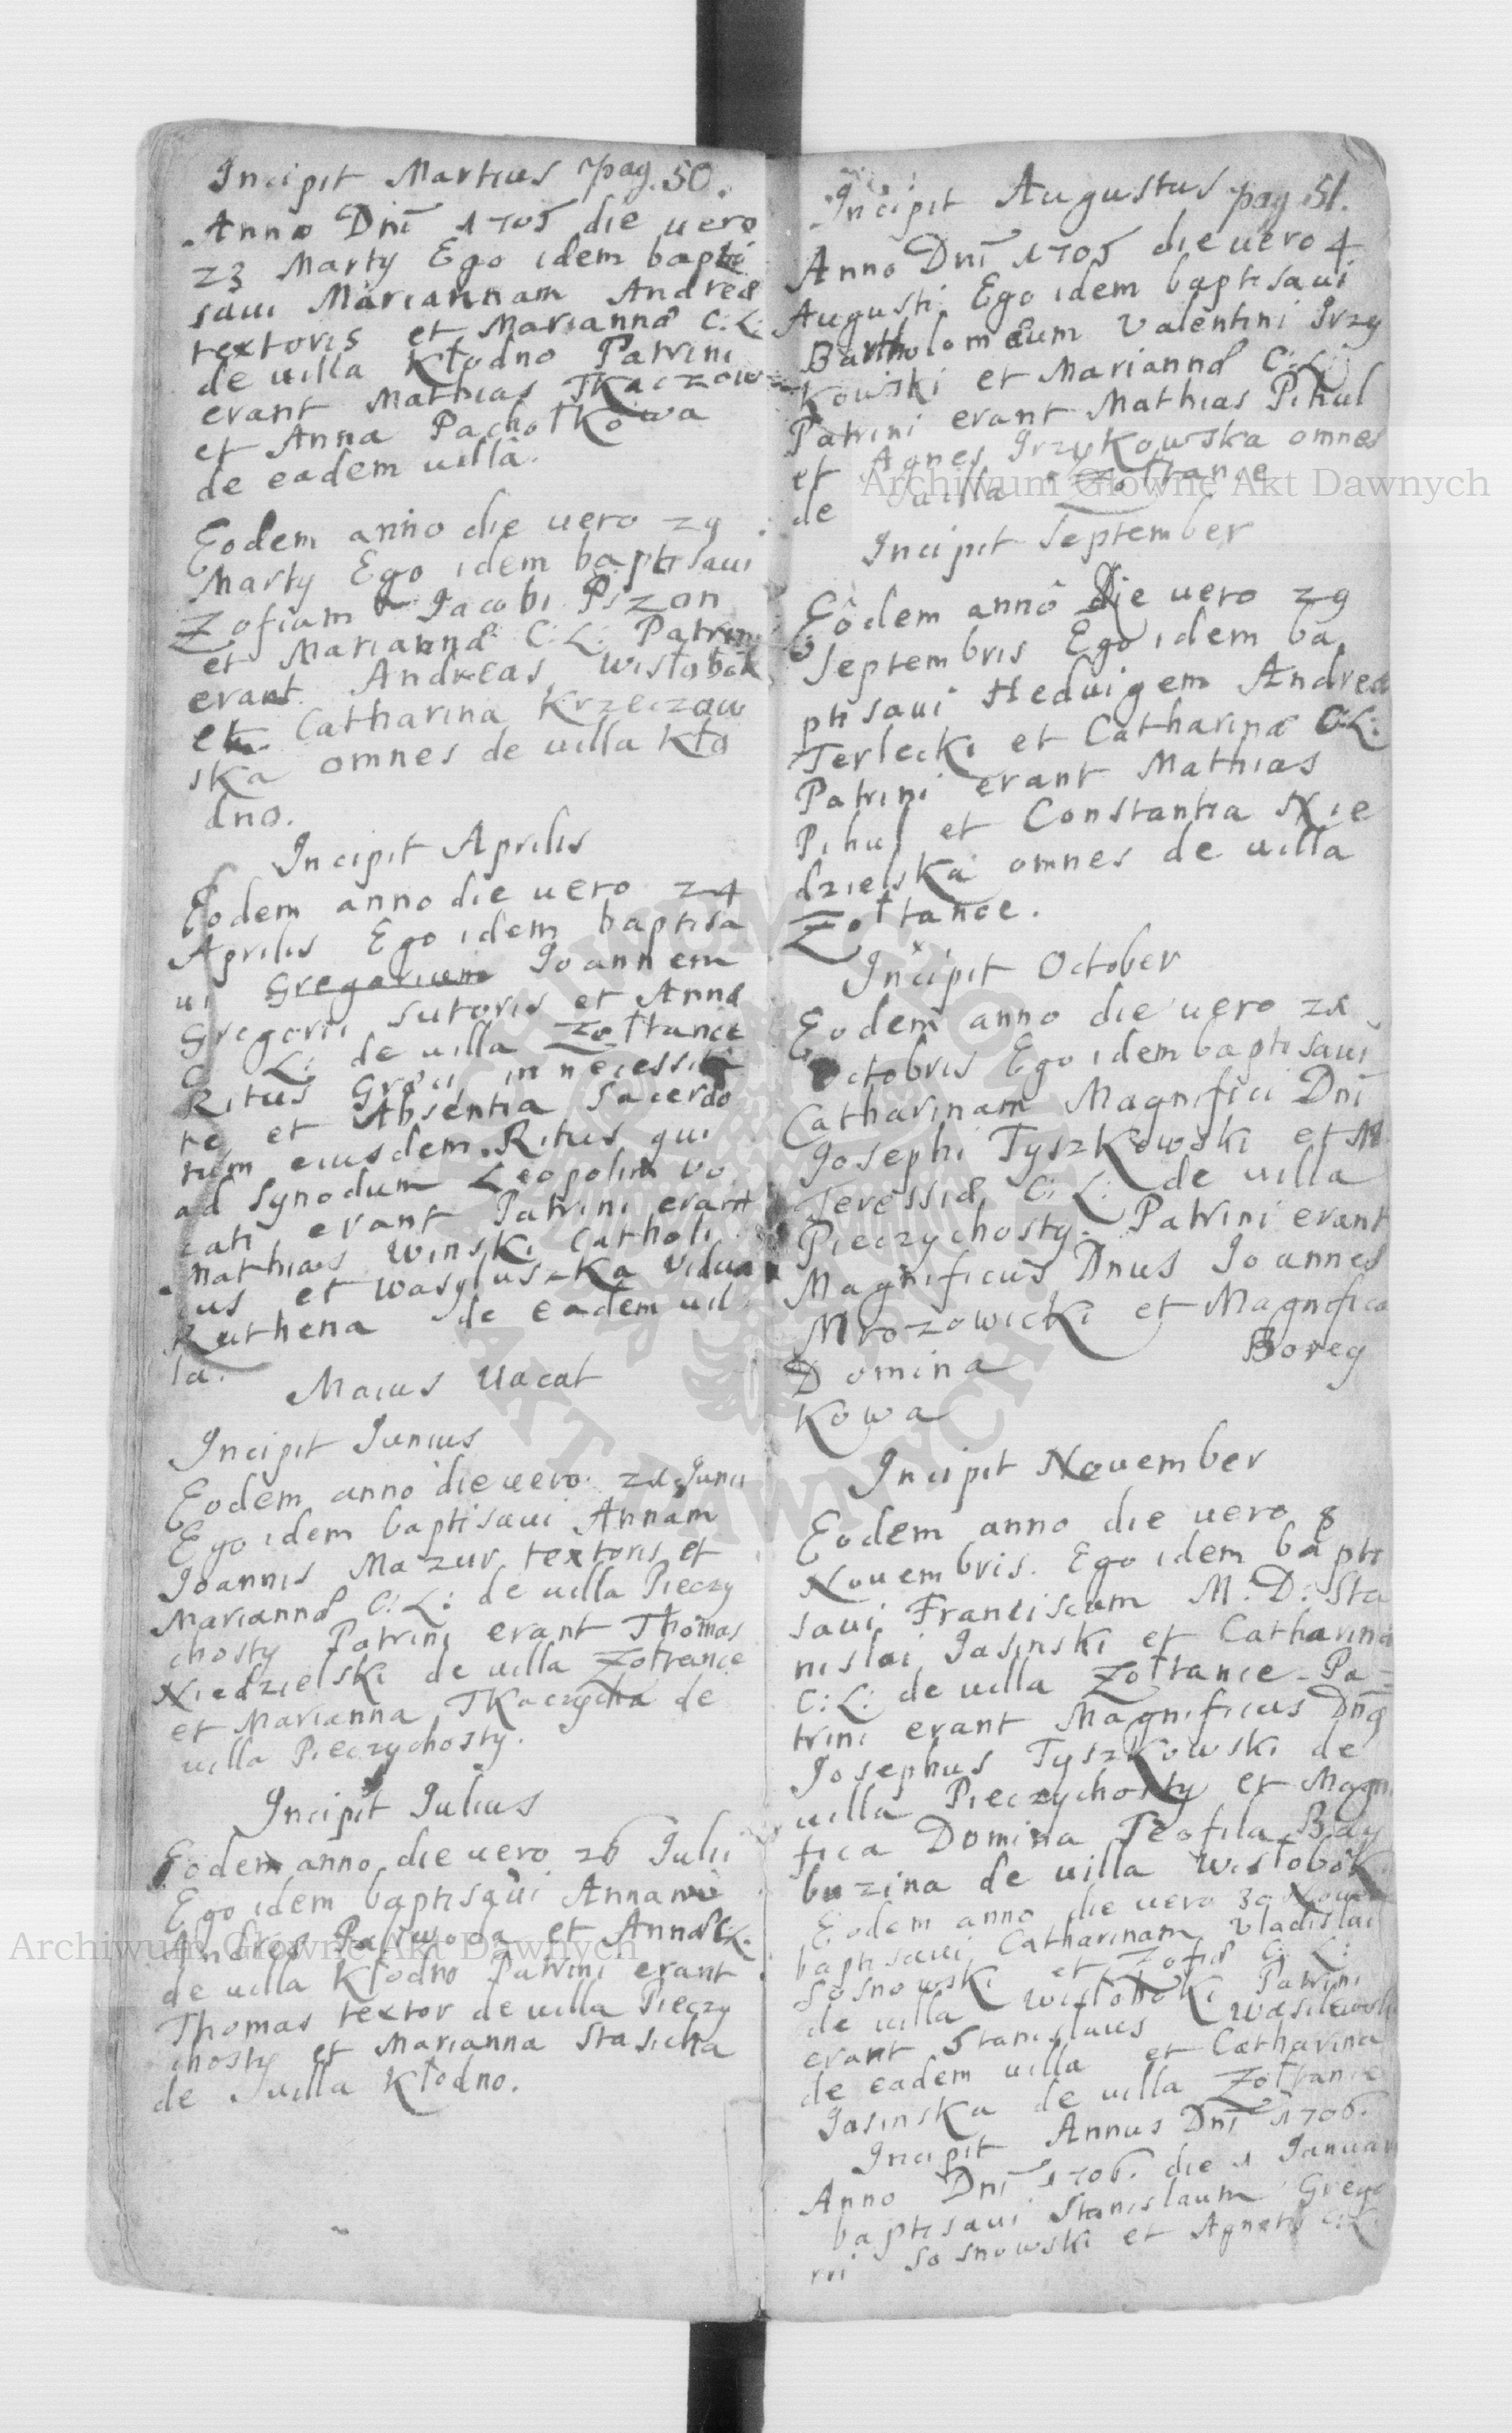 Incipit Martius pag. 50.
Anno Dni 1705 die uero
23 Marty Ego idem bapti
saui Mariannam Andreæ
textoris et Mariannæ C: L:
de uilla Kłodno Patrini
erant Mathias Tkaczow
et Anna Pachołkowa
de eadem uilla.
Eodem anno die uero 29
Marty Ego idem baptisaui
Zofiam Jacobi Pszon
et Mariannæ C: L: Patrini
erant Andreas Wisłobok
et Catharina Krzeczow
ska omnes de uilla Kło
dno.
Incipit Aprilis
Eodem anno die uero 24
Aprilis Ego idem baptisa
ui Gregorium Joannem
Gregorii sutoris et Annæ
C: L: de uilla Zołtance
Ritus Græci in necessita
te et Absentia Sacerdo
tum eiusdem Ritus qui
ad Synodum Leopolim uo
cati erant Patrini erant
Mathias Winski Catholi
us et Wasyluszka Vidua
Ruthena de eadem uil
la.
Maius Uacat
Incipit Junius
Eodem anno die uero 21 Junii
Ego idem baptisaui Annam
Joannis Mazur textoris et
Mariannæ C: L: de uilla Pieczy
chosty Patrini erant Thomas
Niedzielski de uilla Zołtance
et Marianna Tkaczycha de
uilla Pieczychosty.
Incipit Julius
Eodem anno die uero 26 Julii
Ego idem baptisaui Annam
Andreæ Parwoda et Annæ C: L:
de uilla Kłodno Patrini erant
Thomas textor de uilla Pieczy
chosty et Marianna Stasicha
de uilla Kłodno.
Incipit Augustus pag 51.
Anno Dni 1705 die uero 4
Augusti Ego idem baptisaui
Bartholomæum Valentini Grzy
kowski et Mariannæ C: L:
Patrini erant Mathias Pihul
et Agnes Grzykowska omnes
de uilla Zołtance
Incipit September
Eodem anno Die uero 29
Septembris Ego idem ba
ptisaui Heduigem Andreæ
Terlecki et Catharinæ C: L:
Patrini erant Mathias
Pihul et Constantia Nie
dzielska omnes de uilla
Zołtance.
Incipit October
Eodem anno die uero 21
Octobris Ego idem baptisaui
Catharinam Magnifici Dni
Josephi Tyszkowski et M
Teressiæ C: L: de uilla
Pieczychosty. Patrini erant
Magnificus Dnus Joannes
Mrozowicki et Magnifica
Domina Borey
kowa
Incipit Nouember
Eodem anno die uero 8
Nouembris. Ego idem bapti
saui Franciscum M. D: Sta
nislai Jasinski et Catharinæ
C: L: de uilla Zołtance - Pa-
trini erant Magnificus Dnus
Josephus Tyszkowski de
uilla Pieczychosty et Magni
fica Domina Teofila Bay
buzina de uilla Wisłobok
Eodem anno die uero 30 Nouem
baptisaui Catharinam Vladislai
Sosnowski et Zofiæ C: L:
de uilla Wisłoboki Patrini
erant Stanislaus Wasilewski
de eadem uilla et Catharina
Jasinska de uilla Zołtance
Incipit Annus Dni 1706.
Anno Dni 1706. die 1 Januar
baptisaui Stanislaum Grego
rii Sosnowski et Agnetis C: L:
Archiwum Główne Akt Dawnych
Archiwum Główne Akt Dawnych
ARCHIWUM GŁÓWNE AKT DAWNYCH